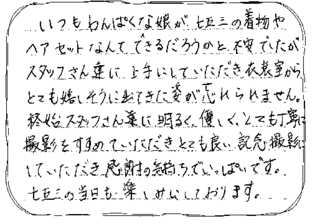 いつもわんぱくな娘が七五三の着物や
ヘアセットなんてできるだろうかと、不安でしたが
スタッフさん達に上手にしていただき衣裳室から
とても嬉しそうに出てきた姿が忘れられません。
終始スタッフさん達に明るく、優しく、とても丁寧に
撮影をすすめていただきとても良い記念撮影に
していただき感謝の気持ちでいっぱいです。
七五三の当日も楽しみにしております。